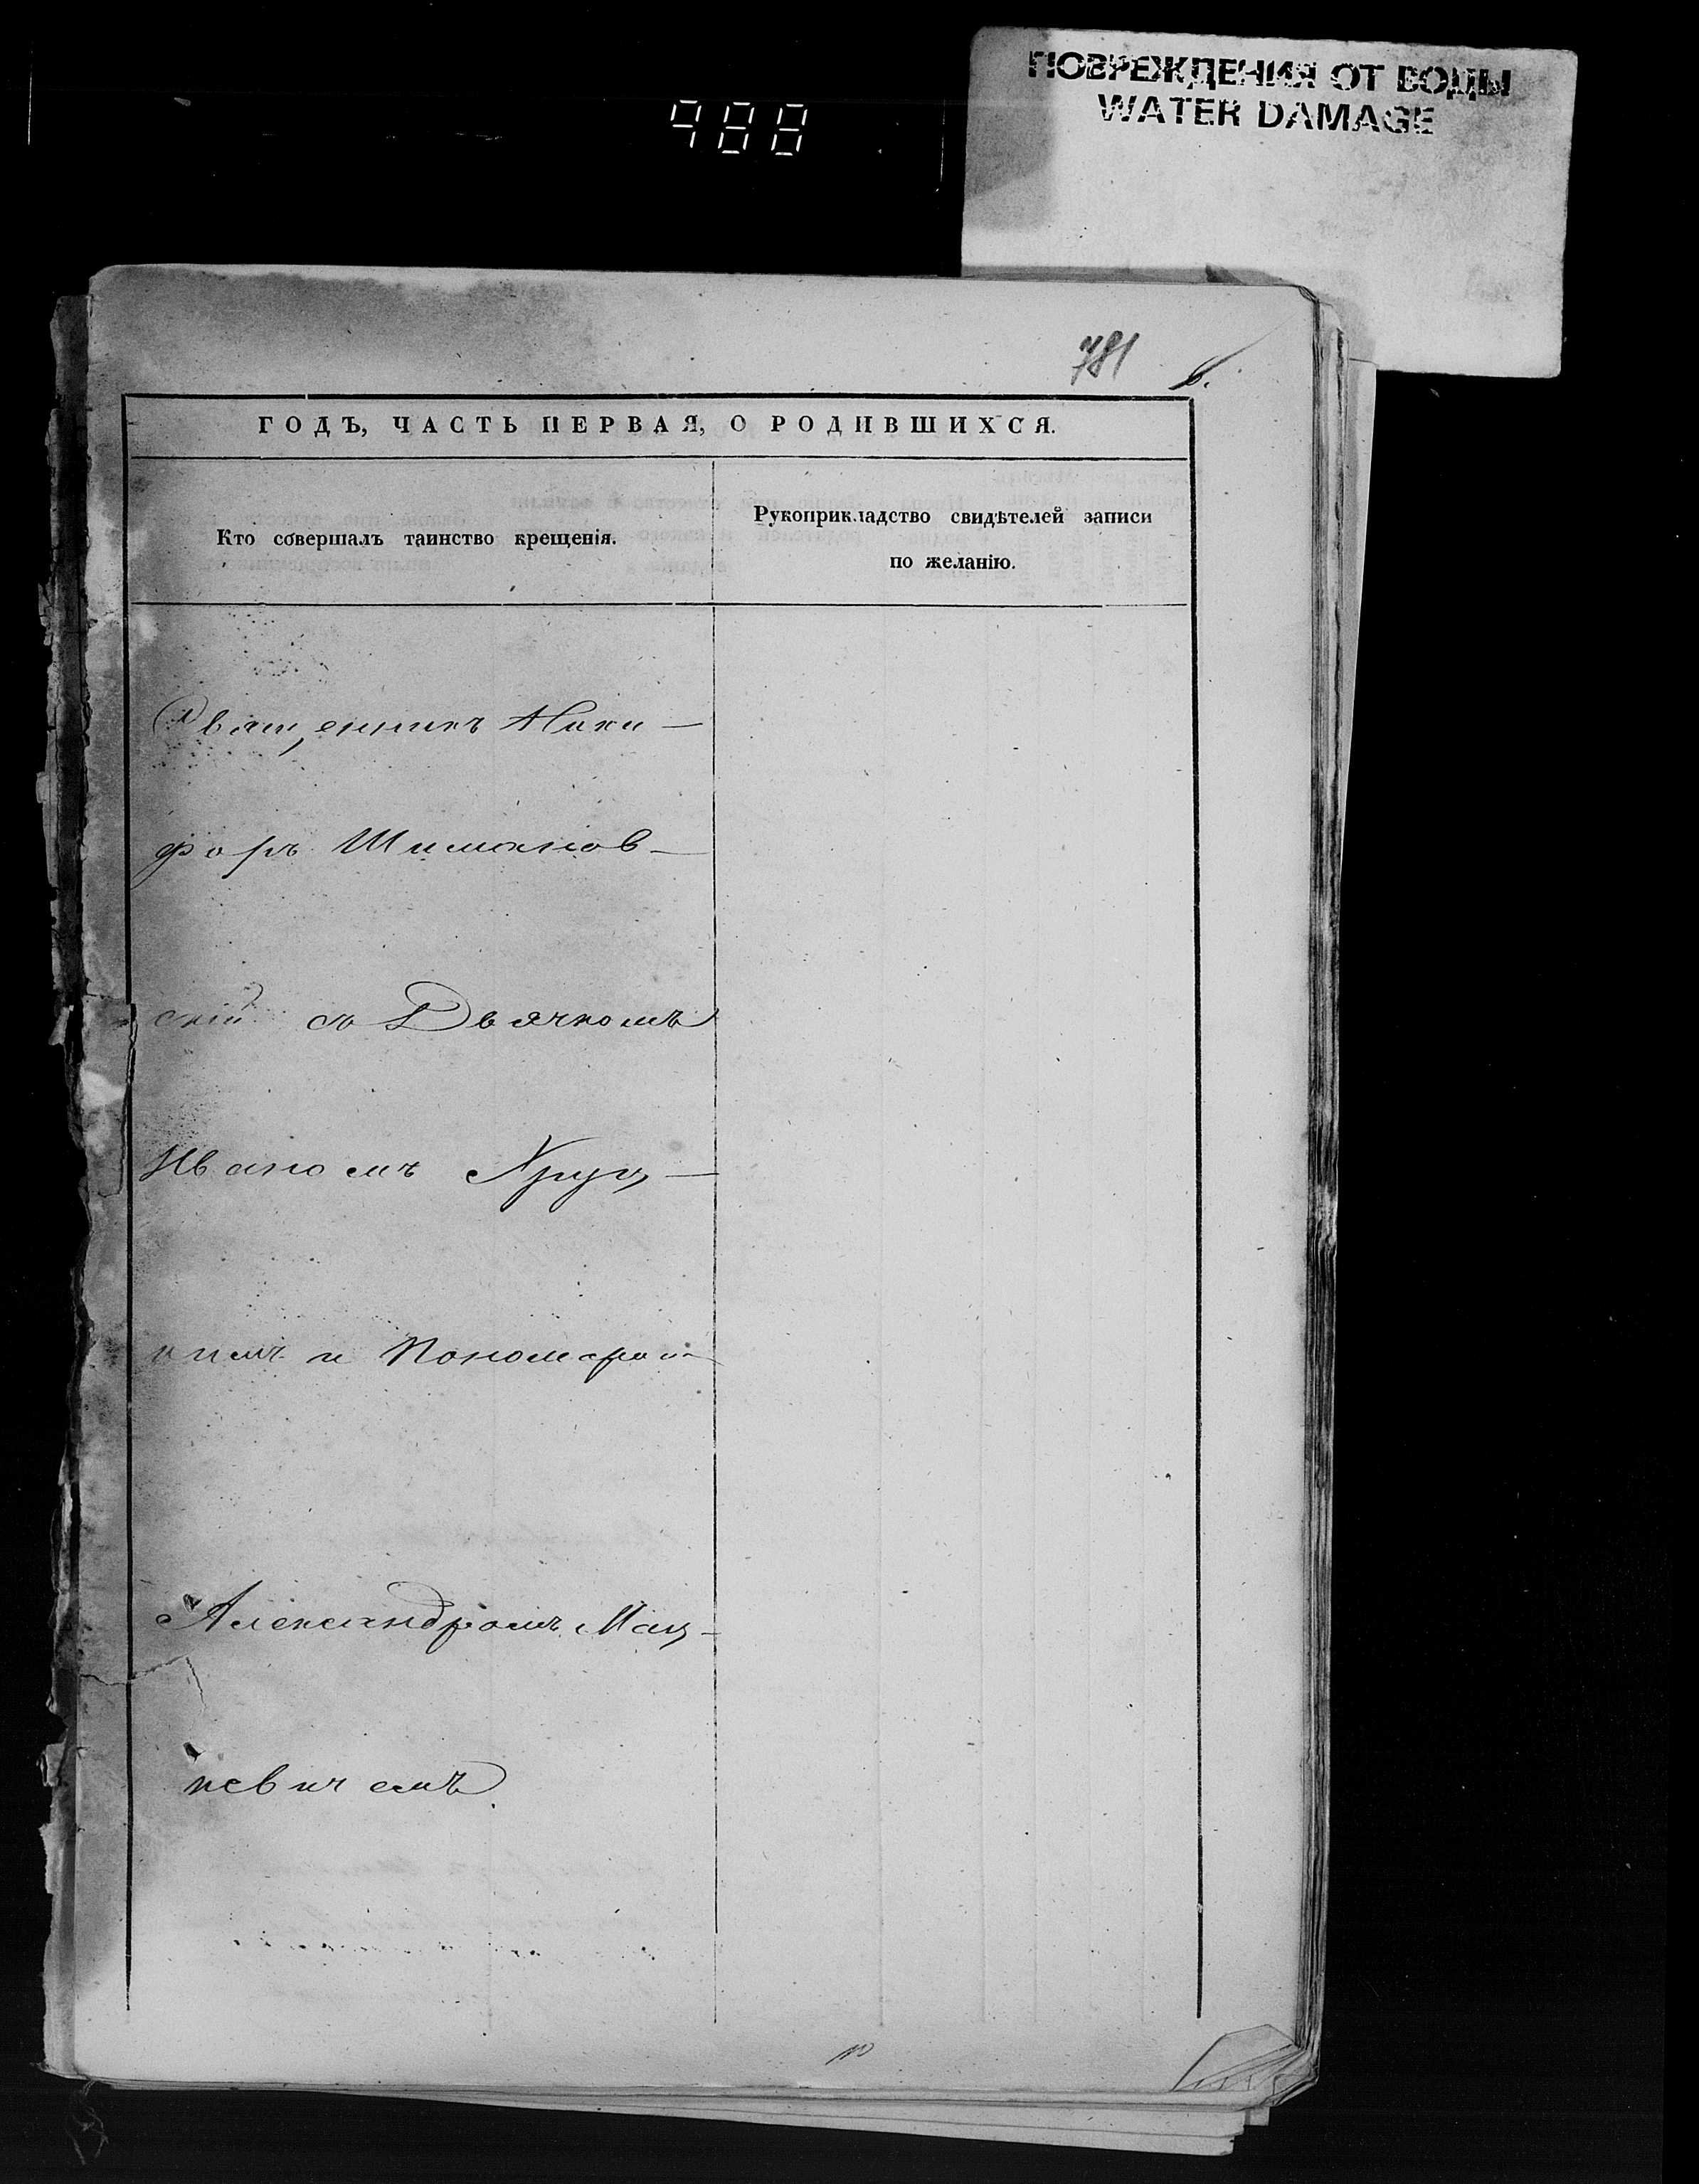 ПОВРЕЖДЕНИЯ ОТ ВОДЫ
WATER DAMAGE
488
781
6.
ГОДЪ, ЧАСТЬ ПЕРВАЯ, О РОДИВШИХСЯ.
Кто совершалъ таинство крещенія.
Рукоприкладство свидѣтелей записи
по желанію.
Священникъ Ники-
форъ Шиманов-
скій съ Дьячкомъ
Иваномъ Хруц-
кимъ и Пономаремъ
Александромъ Мац-
кевичемъ.